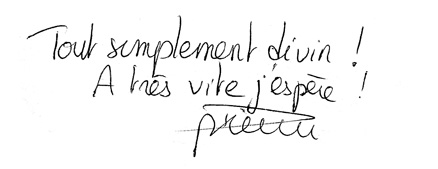 Tout simplement divin !
A très vite j'espère !